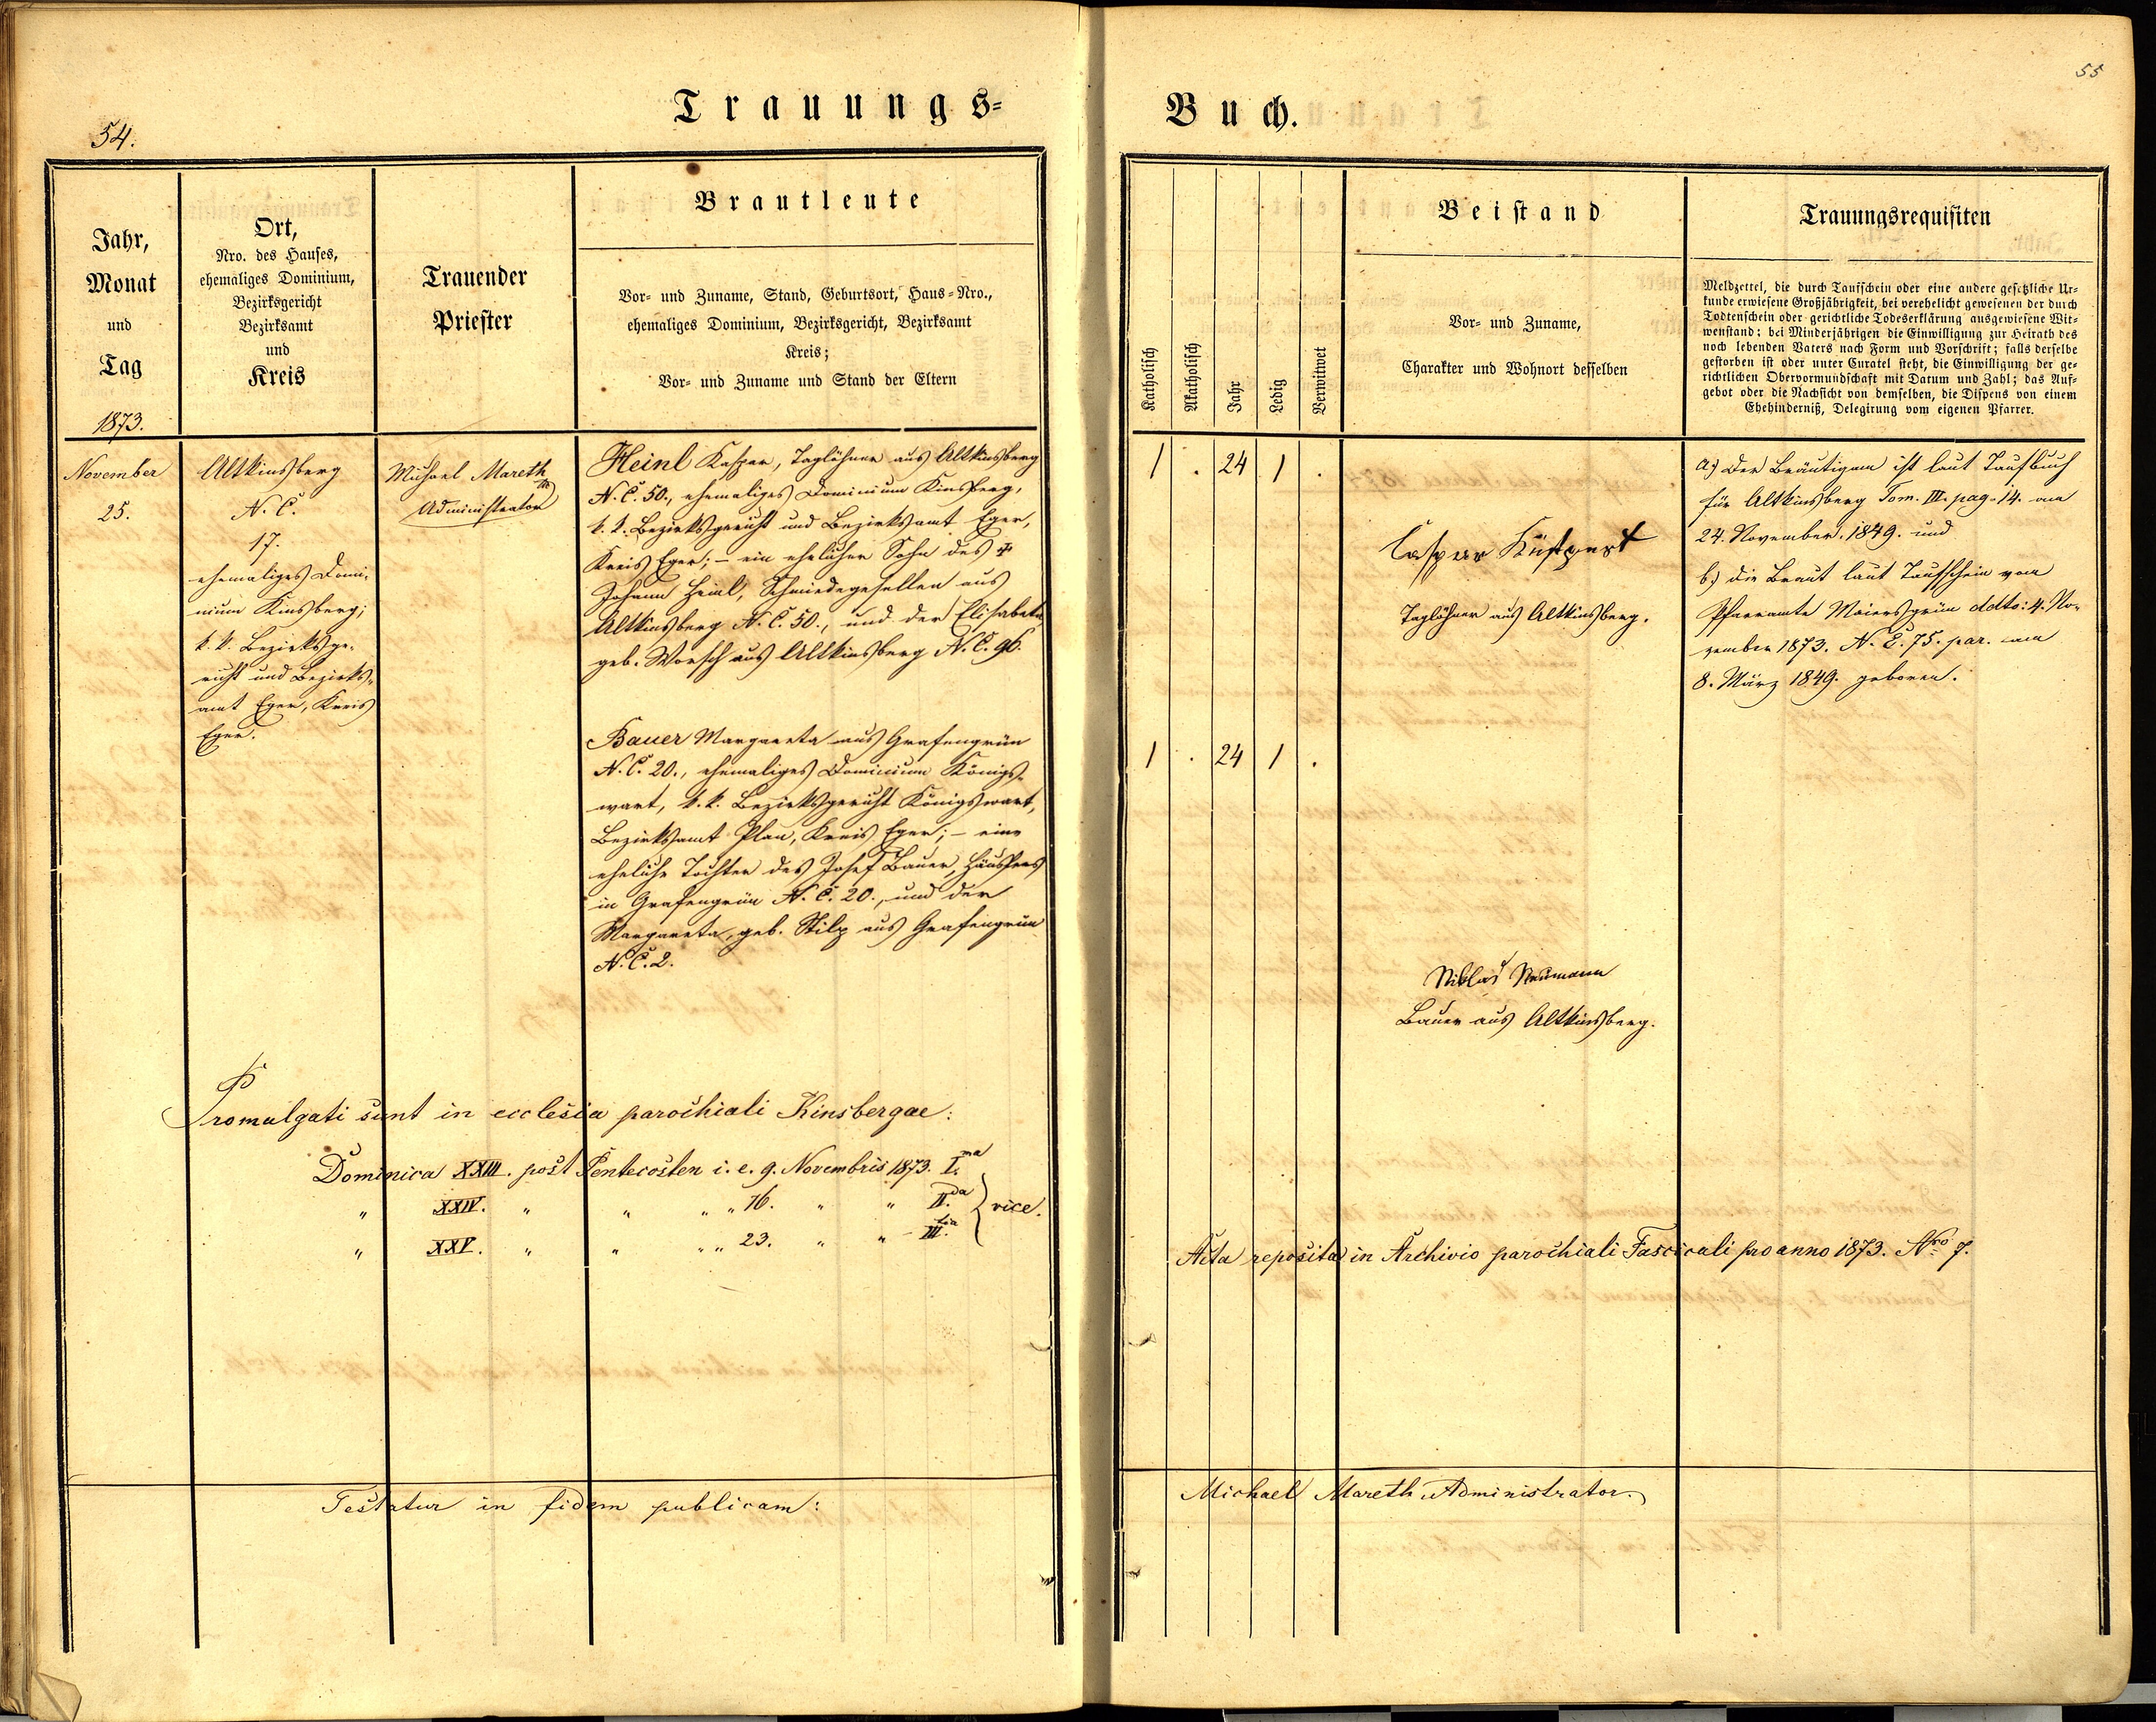 Trauungs=
54.
Jahr,
Monat
und
Tag
1873.
Ort,
Nro. des Hauses,
ehemaliges Dominium,
Bezirksgericht
Bezirksamt
und
Kreis
Trauender
Priester
Brautleute
Vor- und Zuname, Stand, Geburtsort, Haus-Nro.,
ehemaliges Dominium, Bezirksgericht, Bezirksamt
Kreis;
Vor- und Zuname und Stand der Eltern
November
25.
Altkinsberg
N. C.
17.
ehemaliges Domi-
nium Kinsberg;
k. k. Bezirksge-
richt und Bezirks-
amt Eger, Kreis
Eger.
Michael Mareth
Administrator
Heinl Kaspar, Taglöhner aus Altkinsberg
N. C. 50., ehemaliges Dominium Kinsberg,
k. k. Bezirksgericht und Bezirksamt Eger,
Kreis Eger; – ein ehelicher Sohn des ✝
Johann Heinl, Schmiedegesellen aus
Altkinsberg N. C. 50., und der Elisabeta,
geb. Worsch aus Altkinsberg N. C. 96.
Bauer Margareta aus Grafengrün
N. C. 20., ehemaliges Dominium Königs-
wart, k. k. Bezirksgericht Königswart,
Bezirksamt Plan, Kreis Eger; – eine
eheliche Tochter des Josef Bauer, Häuslers
in Grafengrün N. C. 20., und der
Margareta, geb. Stilp aus Grafengrün
N. C. 2.
Promulgati sunt in ecclesia parochiali Kinsbergae:
Dominica XXIII. post Pentecosten i. e. 9. Novembris 1873. I.ma
" XXIV. " " " " 16. " " II.da } vice.
" XXV. " " " " 23. " " III.tia
Testatur in fidem publicam:
55
Buch.
Katholisch
Akatholisch
Jahr
Ledig
Verwitwet
Beistand
Vor- und Zuname,
Charakter und Wohnort desselben
Trauungsrequisiten
Meldzettel, die durch Taufschein oder eine andere gesetzliche Ur-
kunde erwiesene Großjährigkeit, bei verehelicht gewesenen der durch
Todtenschein oder gerichtliche Todeserklärung ausgewiesene Wit-
wenstand; bei Minderjährigen die Einwilligung zur Heirath des
noch lebenden Vaters nach Form und Vorschrift; falls derselbe
gestorben ist oder unter Curatel steht, die Einwilligung der ge-
richtlichen Obervormundschaft mit Datum und Zahl; das Auf-
gebot oder die Nachsicht von demselben, die Dispens von einem
Ehehinderniß, Delegirung vom eigenen Pfarrer.
1 . 24 1 .
Caspar Küspert
Taglöhner aus Altkinsberg.
a.) Der Bräutigam ist laut Taufbuch
für Altkinsberg Tom. III. pag. 14. am
24. November 1849. und
b.) die Braut laut Taufschein vom
Pfarramte Maiersgrün ddto: 4. No-
vember 1873. N. E. 75. par. am
8. März 1849. geboren.
1 . 24 1 .
Niklas Neumann
Bauer aus Altkinsberg.
Acta reposita in Archivio parochiali Fascicali pro anno 1873. Nro 7.
Michael Mareth Administrator.